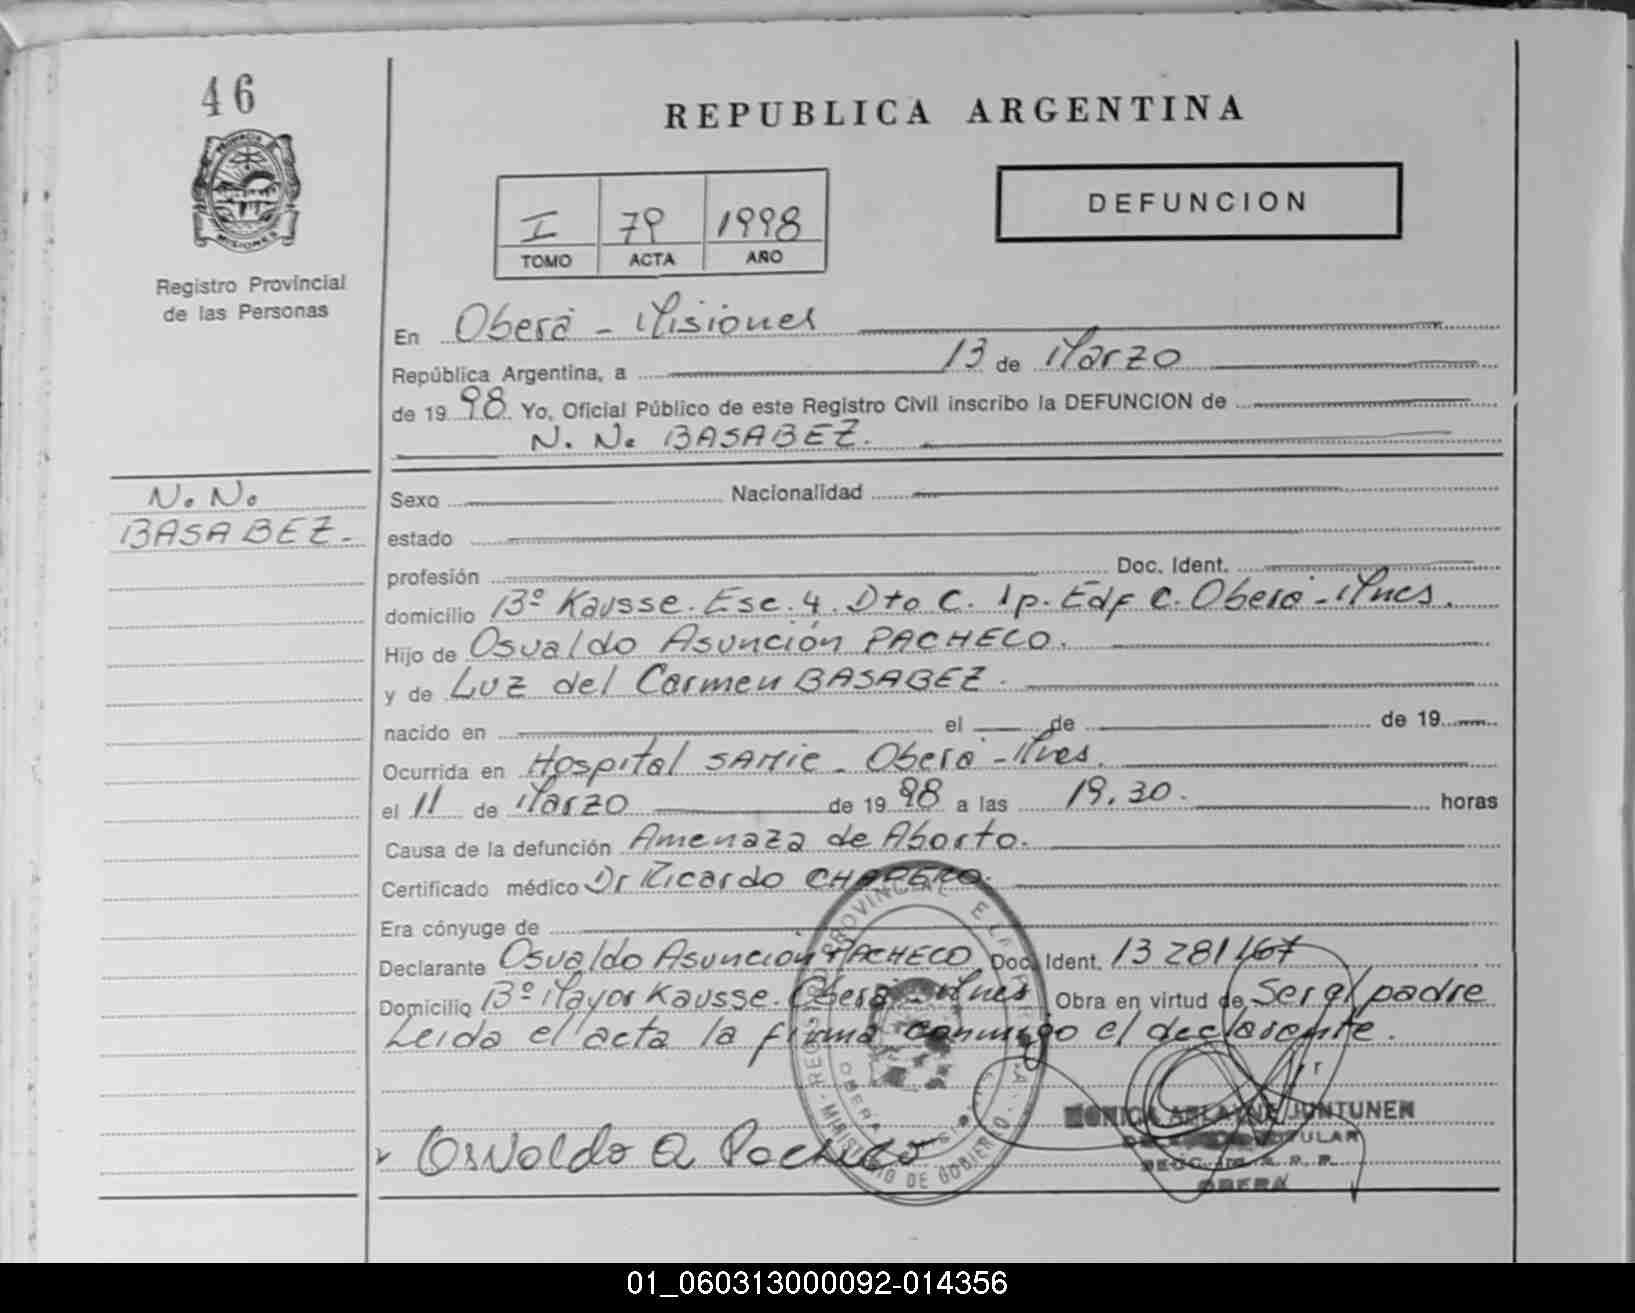 46
REPUBLICA ARGENTINA
DEFUNCION
I 79 1998
TOMO ACTA AÑO
Registro Provincial
de las Personas
En Oberá - Misiones
República Argentina, a 13 de Marzo
de 19 98 Yo, Oficial Público de este Registro Civil inscribo la DEFUNCION de
N. N. BASABEZ.
N. N.
BASABEZ.-
Sexo Nacionalidad
estado
profesión Doc. Ident.
domicilio B° Kausse. Esc. 4. Dto C. 1p. Edf C. Oberá - Mnes.
Hijo de Osvaldo Asunción PACHECO.
y de Luz del Carmen BASABEZ.
nacido en el de de 19
Ocurrida en Hospital SAMIC - Oberá - Mnes.
el 11 de Marzo de 19 98 a las 19.30. horas
Causa de la defunción Amenaza de Aborto.
Certificado médico Dr Ricardo
Era cónyuge de
Declarante Osvaldo Asunción PACHECO Doc. Ident. 13 281 167
Domicilio B° Mayor Kausse. Oberá - Mnes Obra en virtud de Ser el padre
Leida el acta la firma conmigo el declarante.
Osvaldo A Pacheco
JUNTUNEN
OBERA
MINISTERIO DE GOBIERNO
01_060313000092-014356